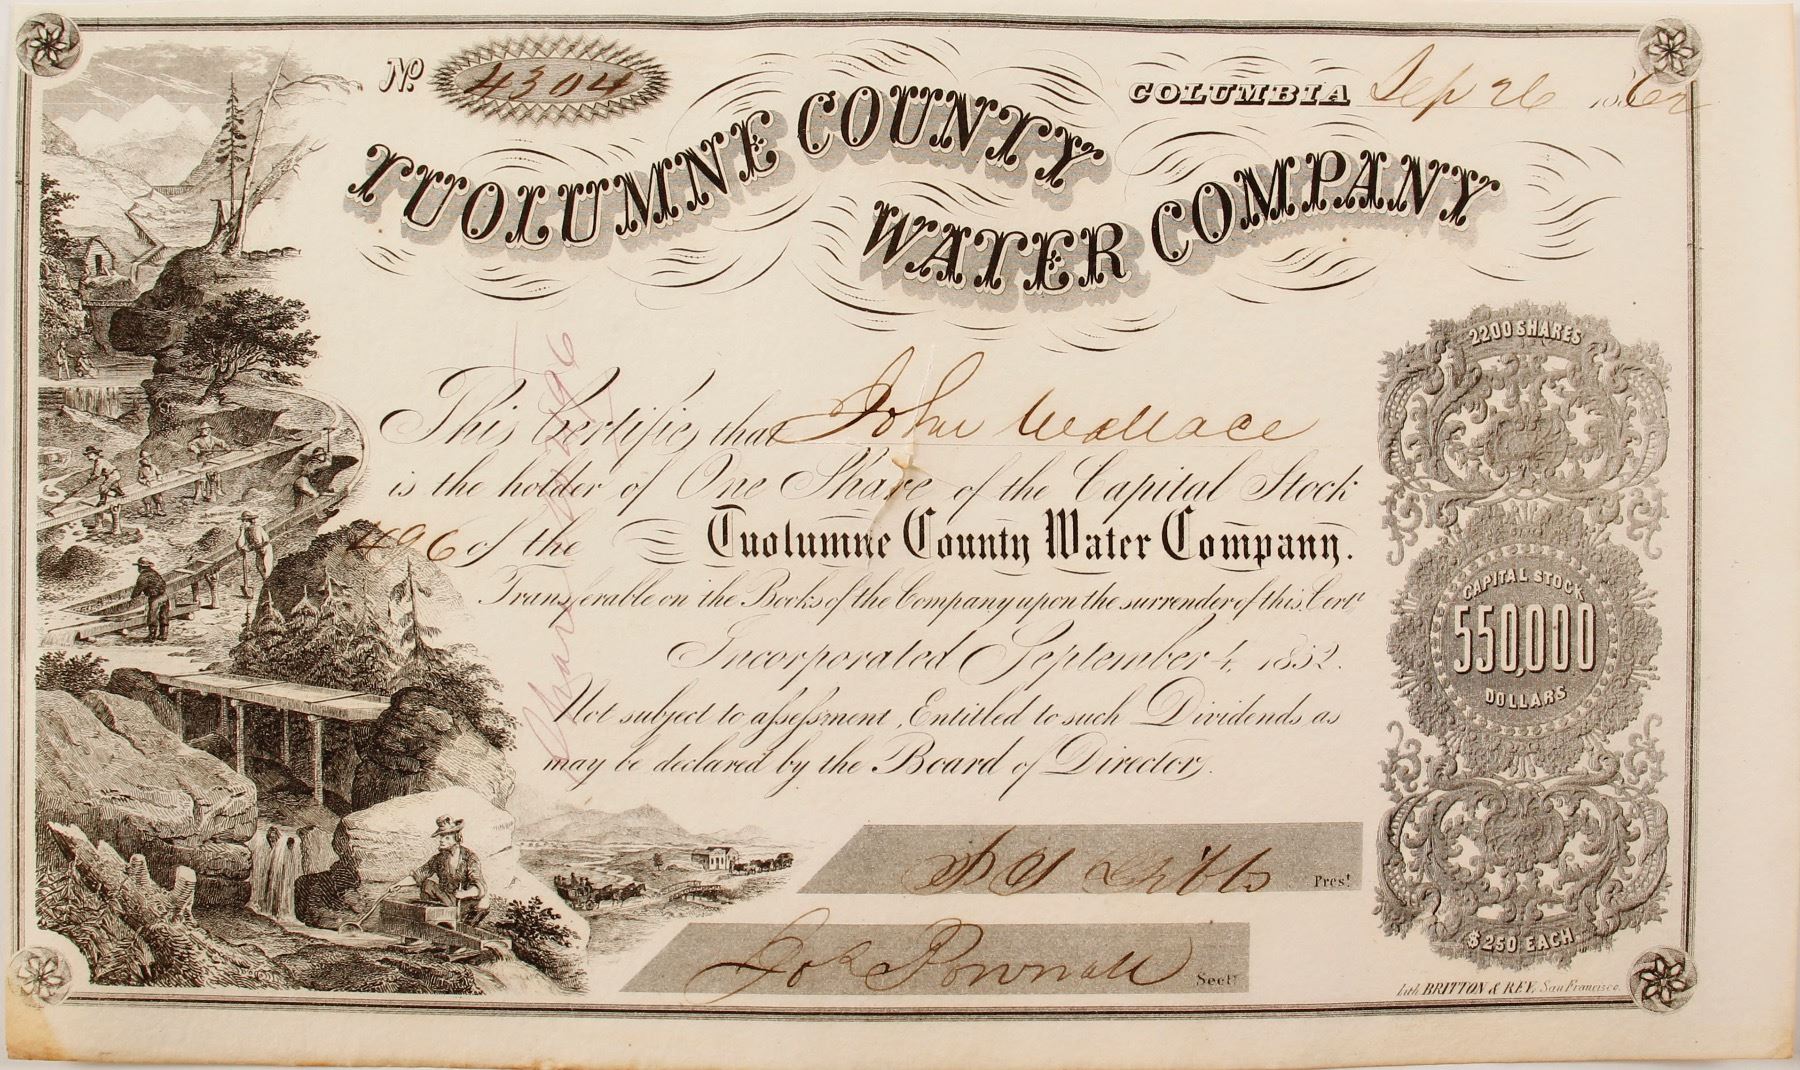 No. 4304
COLUMBIA Sep 26 1862
TUOLUMNE COUNTY
WATER COMPANY
This Certifies that John Wallace
is the holder of One Share of the Capital Stock
496 of the Tuolumne County Water Company.
Transferable on the Books of the Company upon the surrender of this Cert.
Incorporated September 4, 1852.
Not subject to assessment, Entitled to such Dividends as
may be declared by the Board of Directors.
Share 496
2200 SHARES
CAPITAL STOCK
550,000
DOLLARS
$250 EACH
Gibbs Prest
Pownall Secty
Lith. BRITTON & REY, San Francisco.